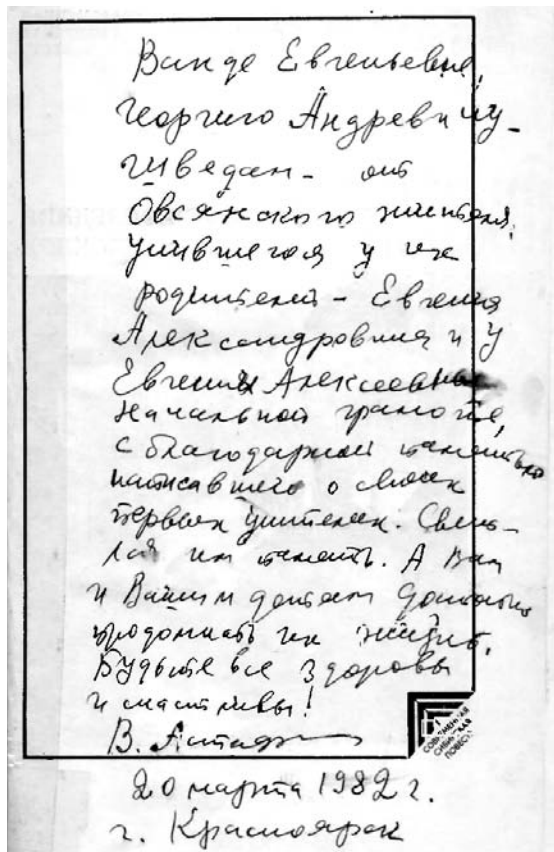 Ванде Евгеньевне,
Георгию Андреевичу
Шведам - от
Овсянского жителя,
учившегося у их
родителей - Евгения
Александровича и у
Евгении Алексеевны
начальной грамоте,
с благодарной памятью
написавшего о своих
первых учителях. Свет-
лая им память. А Вам
и Вашим детям
продолжать их жизнь.
Будьте все здоровы
и счастливы!
В. Астафьев
20 марта 1982 г.
г. Красноярск
СОВРЕМЕННАЯ
СИБИРСКАЯ
ПОВЕСТЬ